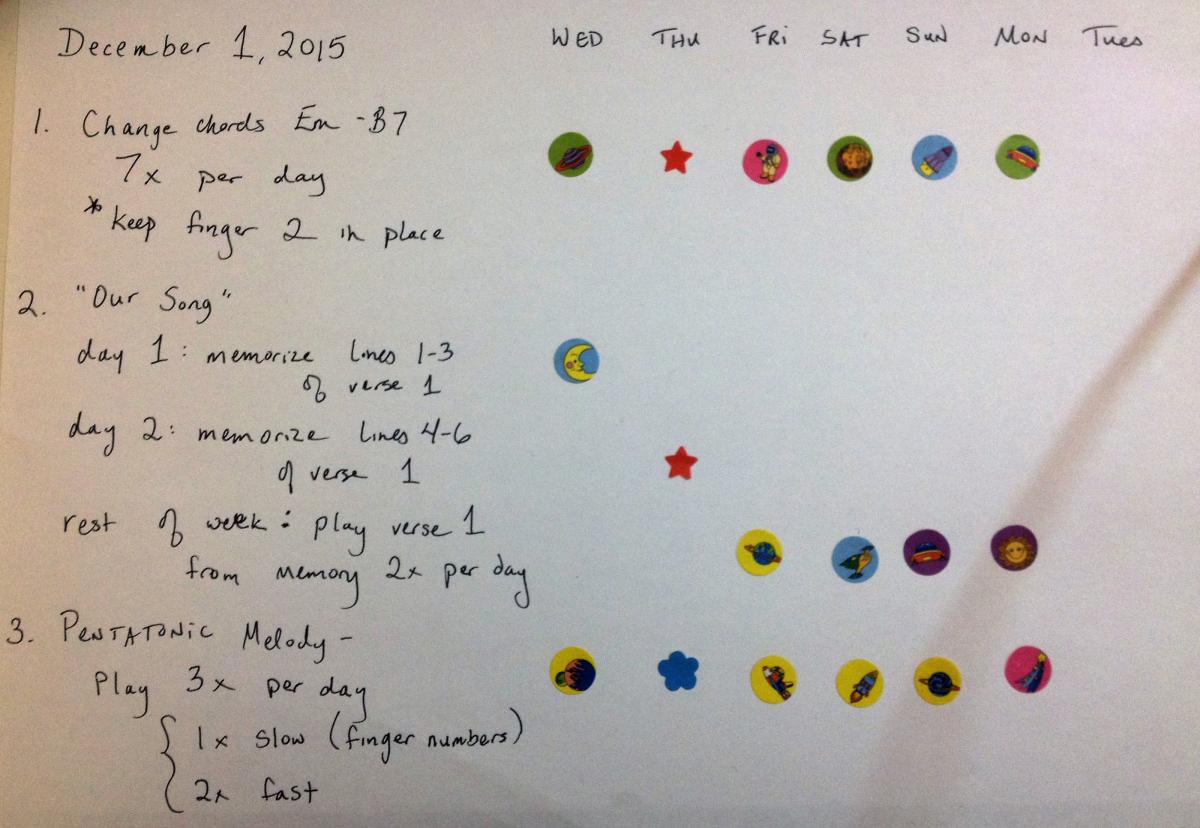 December 1, 2015
WED THU FRi SAT SUN MON Tues
1. Change chords Em - B7
7x per day
* Keep finger 2 in place
2. "Our Song"
day 1: memorize lines 1-3
of verse 1
day 2: memorize lines 4-6
of verse 1
rest of week: play verse 1
from memory 2x per day
3. PENTATONiC Melody -
Play 3x per day
{ 1x slow (finger numbers)
2x fast